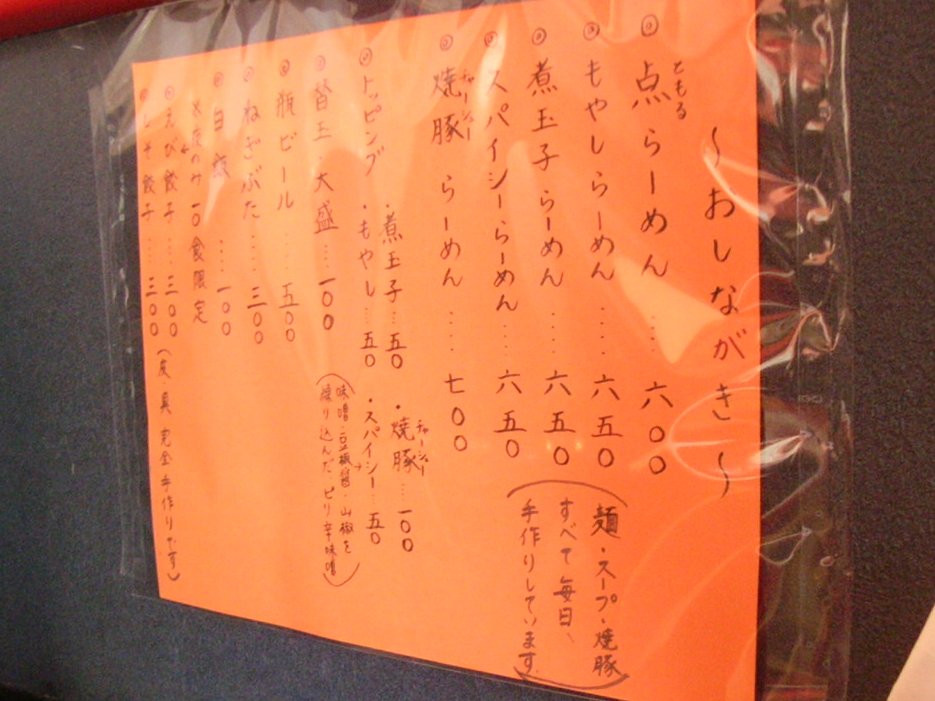 ～おしながき～
ともる
◎点らーめん……六〇〇
◎もやしらーめん……六五〇
◎煮玉子らーめん……六五〇
◎スパイシーらーめん……六五〇
チャーシュー
◎焼豚らーめん……七〇〇
(麺・スープ・焼豚
すべて毎日、
手作りしています)
◎トッピング
・煮玉子…五〇
・もやし…五〇
チャーシュー
・焼豚……一〇〇
・スパイシー…五〇
(味噌・豆板醤・山椒を
練り込んだ、ピリ辛味噌)
◎替玉・大盛……一〇〇
◎瓶ビール……五〇〇
◎ねぎぶた……三〇〇
◎白飯……一〇〇
のみ一〇食限定
◎えび餃子……三〇〇
◎しそ餃子……三〇〇
(皮・具完全手作りです)